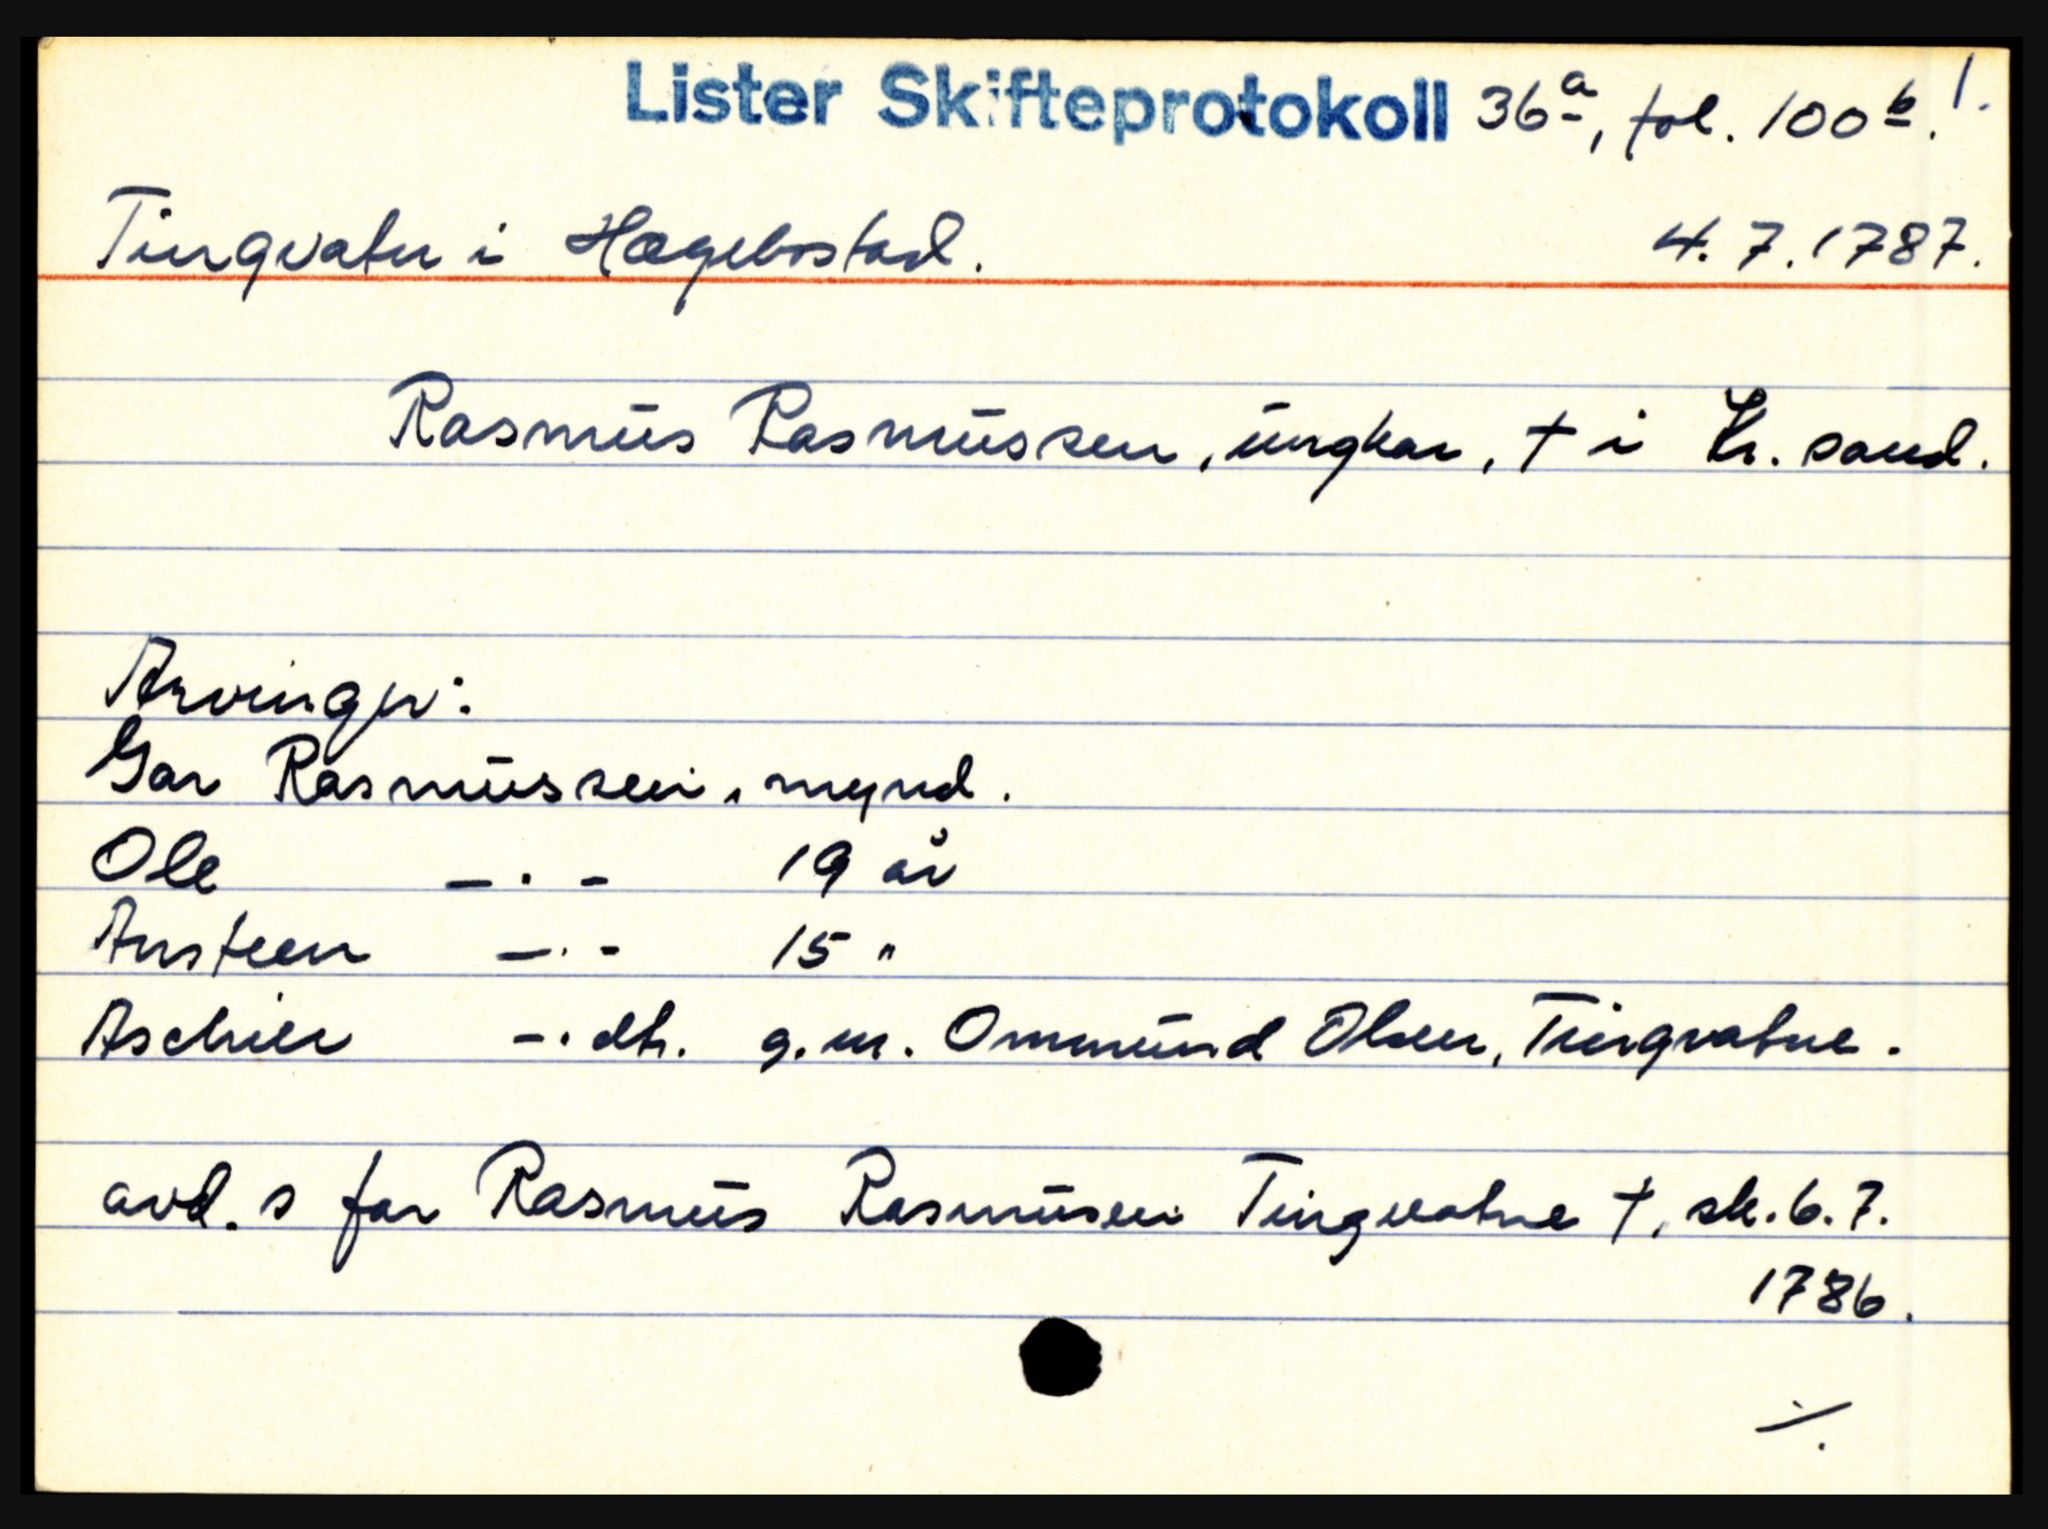 Lister Skifteprotokoll 36a, fol. 100b. 1.
Tingvatn i Hægebostad. 4.7.1787.
Rasmus Rasmussen, ungkar, † i Kr. sand.
Arvinger:
Gar Rasmussen, mynd.
Ole —.- 19 år
Ansteen —.- 15 "
Aschier -. dtr. g.m. Ommund Olsen, Tingvatne.
avd. s far Rasmus Rasmusen Tingvatne †, sk. 6.7.
1786.
./.